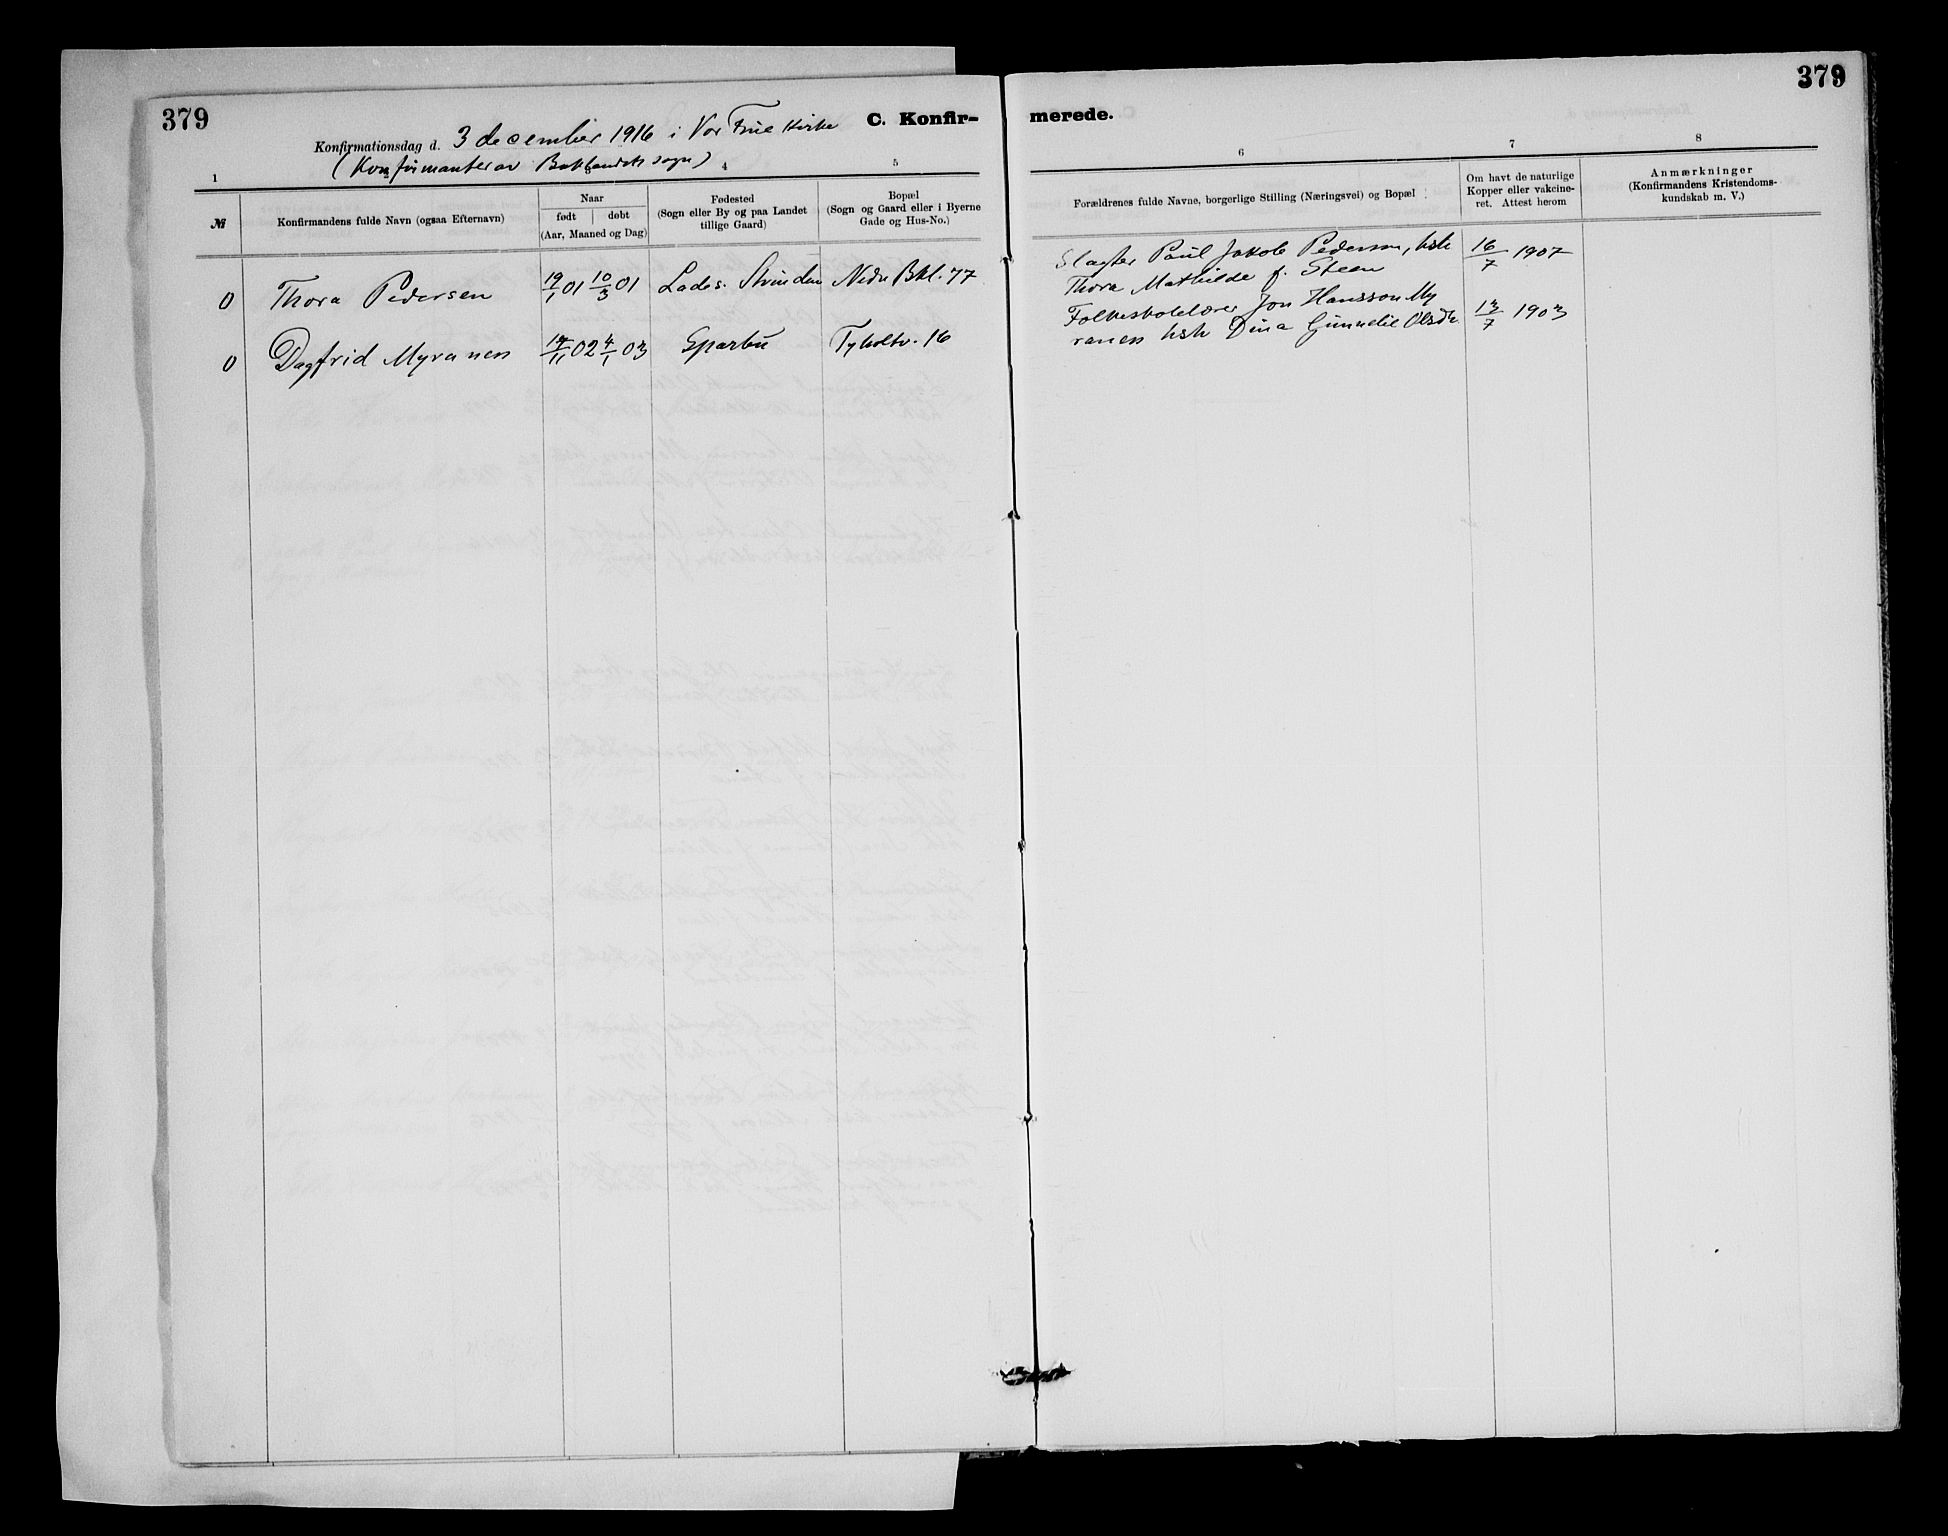 379
Konfirmationsdag d. 3 december 1916 i Vor Frue Kirke
C. Konfir-
(Konfirmanter av Baklandets sogn)
1
4
5
№
Konfirmandens fulde Navn (ogsaa Efternavn)
Naar
født
døbt
(Aar, Maaned og Dag)
Fødested
(Sogn eller By og paa Landet
tillige Gaard)
Bopæl
(Sogn og Gaard eller i Byerne
Gade og Hus-No.)
0 Thora Pedersen 19/1 01 10/3 01 Lades. Strinden Nedre Bkl. 77
0 Dagfrid Myranen 02 4/1 03 Sparbu Tyholtv. 16
379
merede.
6
7
8
Forældrenes fulde Navne, borgerlige Stilling (Næringsvei) og Bopæl
Om havt de naturlige
Kopper eller vakcine-
ret. Attest herom
Anmærkninger
(Konfirmandens Kristendoms-
kundskab m. V.)
Slagter Paul Jakob Pedersen, hstr 16/7 1907
Thora Mathilde f. Steen
Folkeskolelærer Jon Hansson My 13/7 1903
ranen hstr Dina Gunnelie Olsdtr